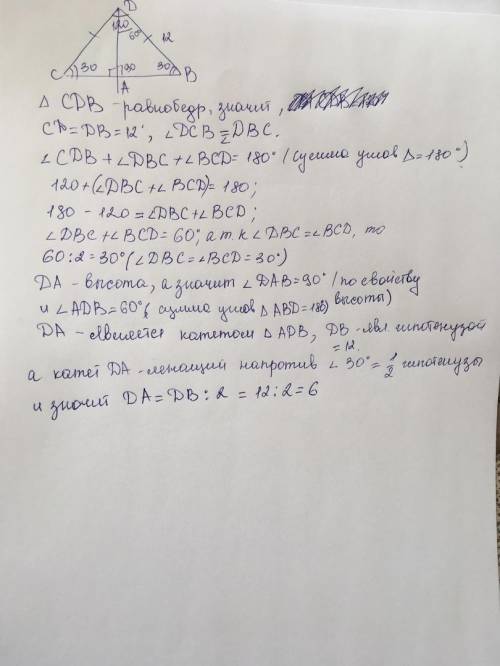 D
120
60
12
C
30
90
30
B
A
Δ CDB - равнобедр, значит,
CD = DB = 12, ∠DCB = ∠DBC.
∠CDB + ∠DBC + ∠BCD = 180° (сумма углов Δ = 180°)
120 + (∠DBC + ∠BCD) = 180;
180 - 120 = ∠DBC + ∠BCD;
∠DBC + ∠BCD = 60°, а т.к ∠DBC = ∠BCD, то
60 : 2 = 30° (∠DBC = ∠BCD = 30°)
DA - высота, а значит ∠DAB = 90° (по свойству высоты)
и ∠ADB = 60° (сумма углов Δ ABD = 180)
DA - является катетом Δ ADB, DB - явл. гипотенузой
= 12.
а катет DA - лежащий напротив ∠ 30° = 1/2 гипотенузы
и значит DA = DB : 2 = 12 : 2 = 6